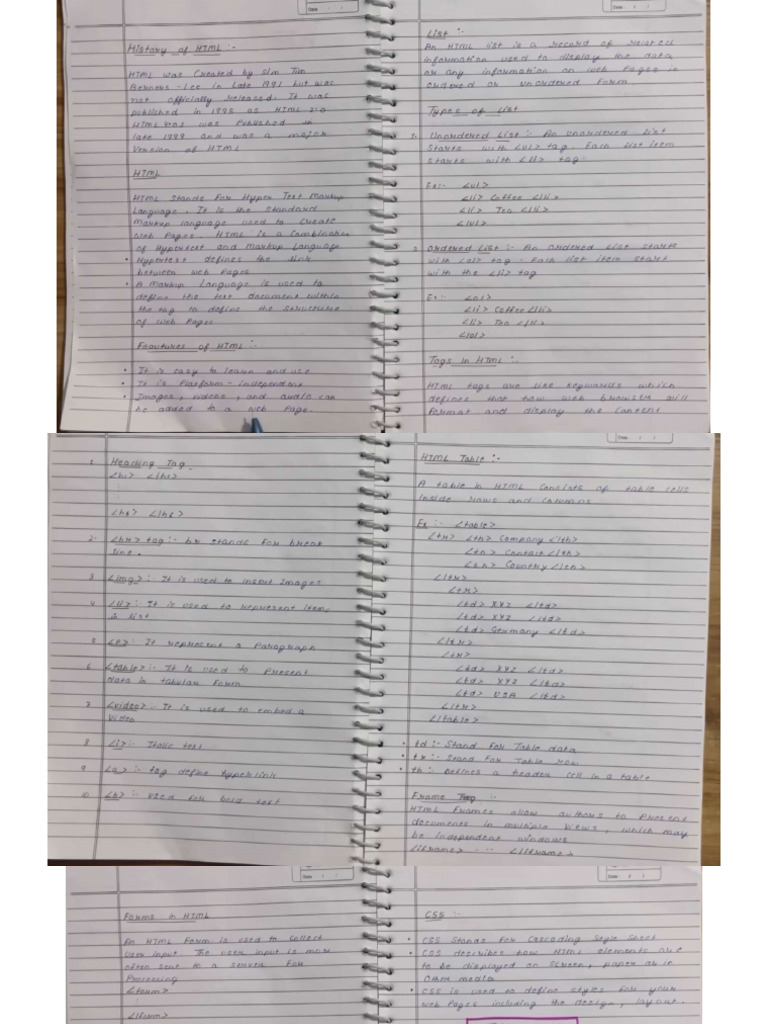 Date / /
History of HTML :-
HTML was Created by Sim Tim
Berners - Lee in Late 1991 but was
not officially Released. It was
published in 1995 as HTML 2.0
HTML 4.01 was Published in
late 1999 and was a major
Version of HTML
HTML
HTML Stands For Hyper Text Markup
Language. It is the Standard
Markup language used to Create
Web Pages. HTML is a Combination
of Hypertext and Markup Language
• Hypertext defines the link
between web Pages
• A Markup Language is used to
define the text document within
the tag to define the Structure
of web Pages
Features of HTML :-
• It is easy to learn and use
• It is Platform - independent
• Images, videos, and audio can
be added to a web Page.
Date / /
List :-
An HTML list is a record of related
information used to display the data
or any information on web Pages in
Ordered or unordered Form
Types of List
1. Unordered List :- An unordered List
Starts with <ul> tag. Each List item
Starts with <li> tag.
Ex:- <ul>
<li> Coffee </li>
<li> Tea </li>
</ul>
2. Ordered List :- An Ordered List Starts
with <ol> tag. Each list item start
with the <li> tag
Ex:- <ol>
<li> Coffee </li>
<li> Tea </li>
</ol>
Tags in HTML :-
HTML tags are like Keywords which
defines that how web browser will
Format and display the Content
1. Heading Tag
<h1> </h1>
<h6> </h6>
2. <br> tag :- br stands For break
line.
3 <img> :- It is used to insert Images
4 <li> :- It is used to represent item,
in list
5 <p> :- It represent a Paragraph
6 <table> :- It is used to Present
data in tabular Form
7 <video> :- It is used to embed a
Video
8 <i> :- Italic text
9 <a> :- tag define hyperlink
10 <b> :- used for bold text
Date / /
HTML Table :-
A table in HTML Consists of table cells
inside rows and columns
Ex :- <table>
<tr> <th> Company </th>
<th> Contact </th>
<th> Country </th>
</tr>
<tr>
<td> XYZ </td>
<td> XYZ </td>
<td> Germany </td>
</tr>
<tr>
<td> XYZ </td>
<td> XYZ </td>
<td> USA </td>
</tr>
</table>
• td :- Stand For Table data
• tr :- Stand For Table Row
• th :- Defines a header cell in a table
Frame Tag :-
HTML Frames allow authors to Present
documents in multiple Views, which may
be independent windows
<iframe> -- </iframe>
Date / /
Forms in HTML
An HTML Form is used to collect
user input. The user input is most
often sent to a server For
Processing
<form>
</form>
Date / /
CSS :-
• CSS Stands For Cascading Style Sheet
• CSS describes how HTML elements are
to be displayed on Screen, paper or in
Other media
• CSS is used to define styles for your
web Pages including the design, layout.